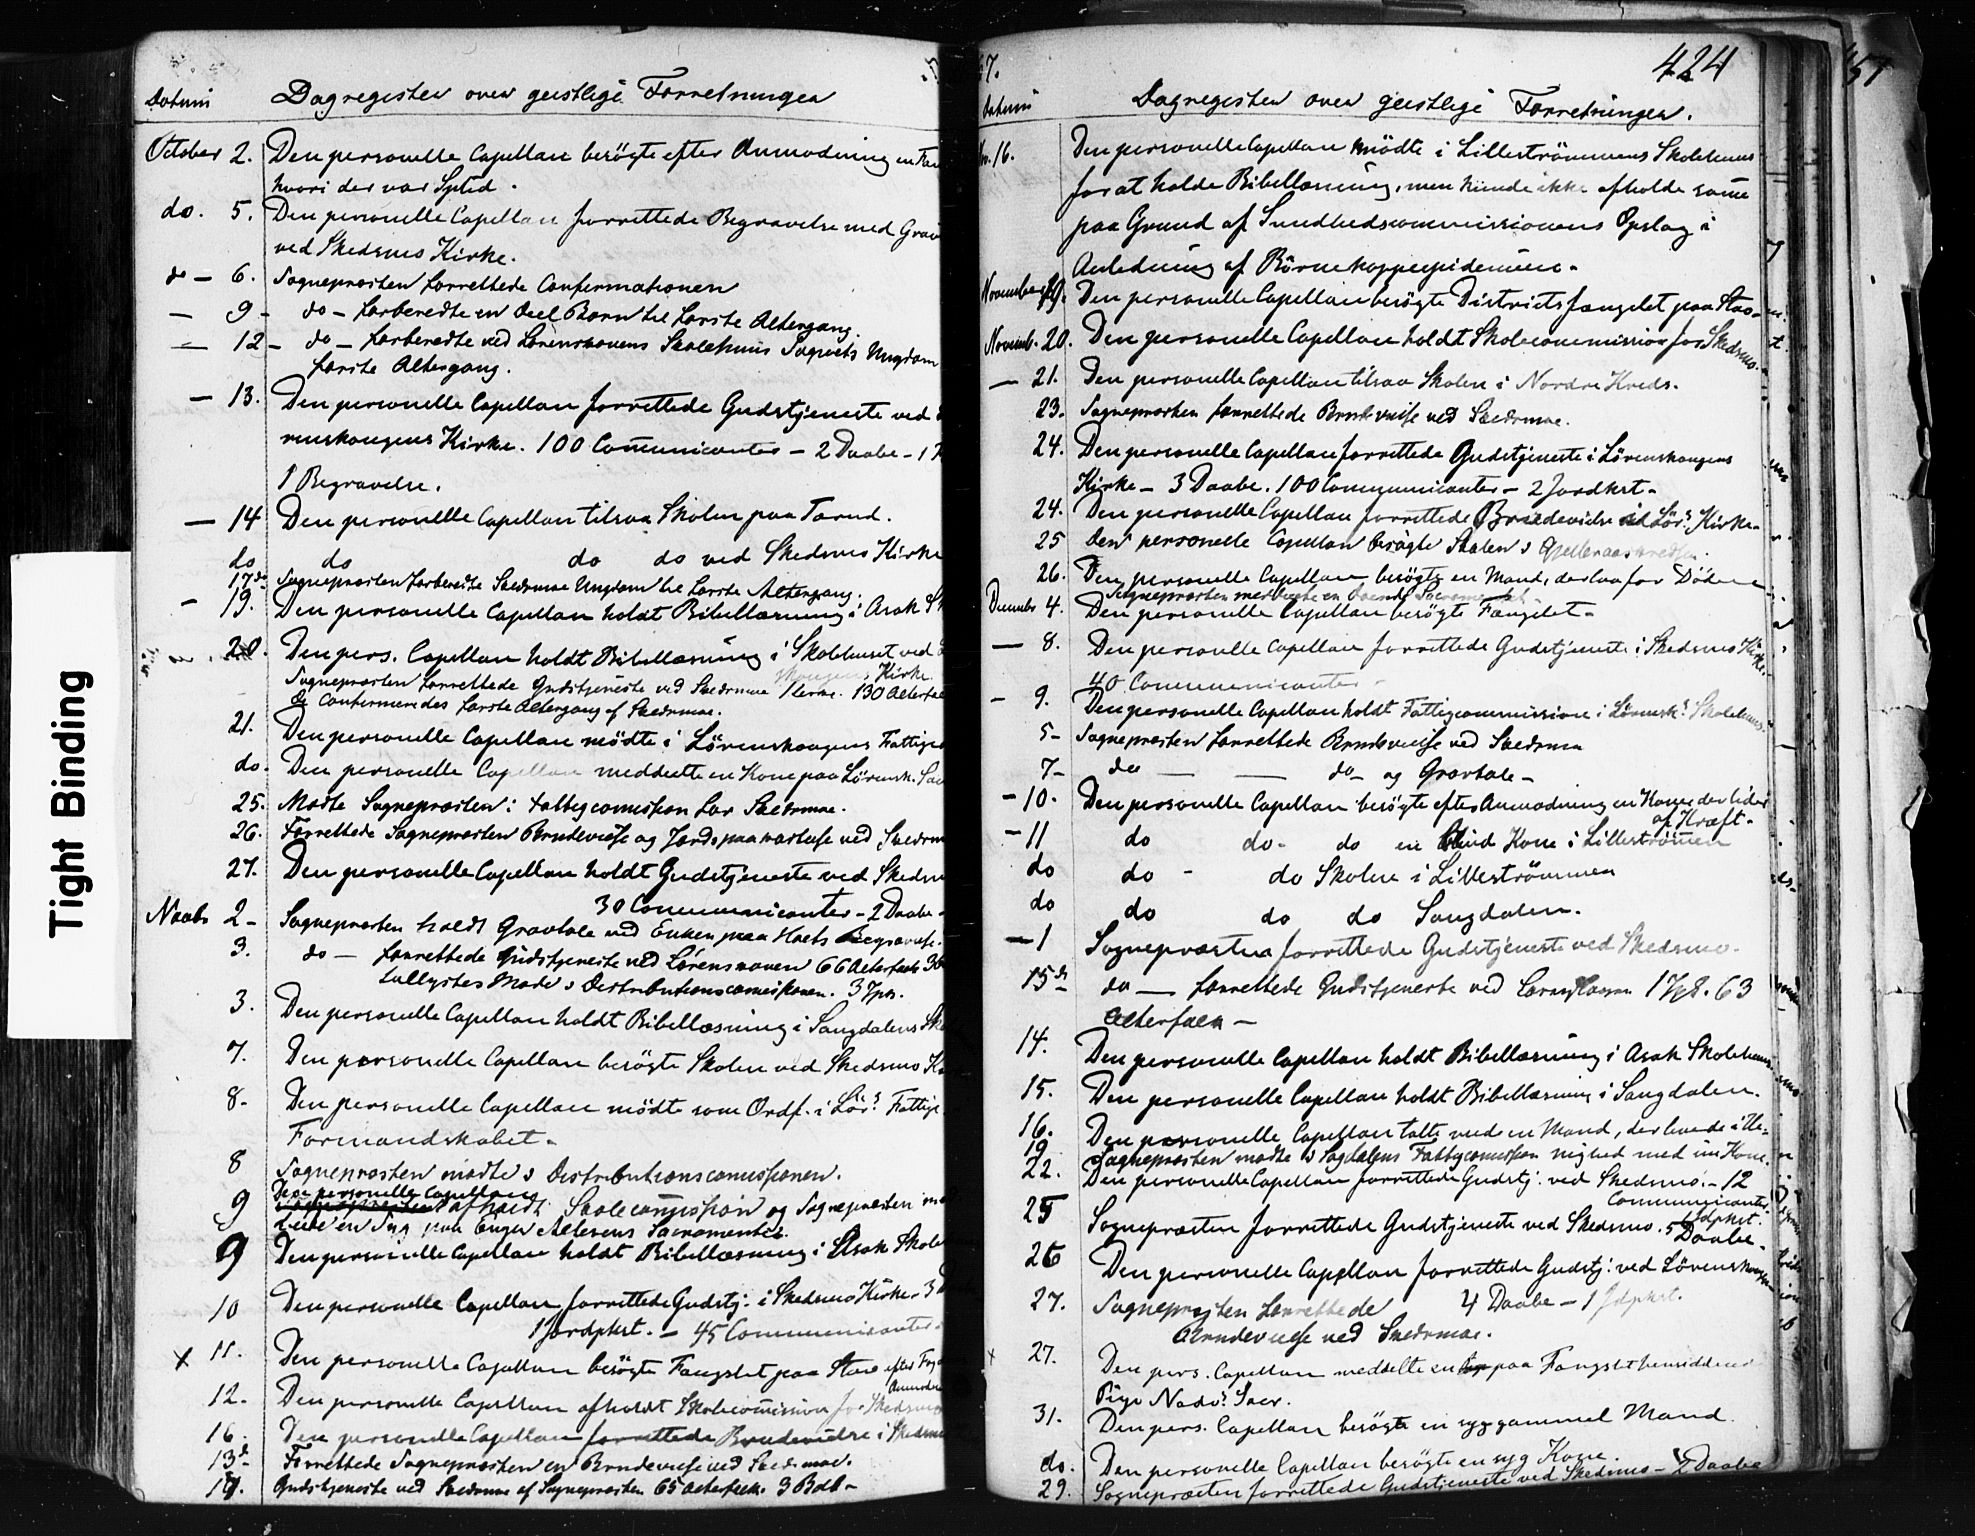 Tight Binding
Datum Dagregister over geistlige Forretninger
October 2. Den personelle Capellan besögte efter Anmodning en
hvori der var Spled.
do. 5. Den personelle Capellan forrettede Begravelse med
ved Skedsmo Kirke.
do – 6. Sognepræsten forrettede Confirmationen
— 9 – do – forberedte en Deel Børn til første Altergang.
— 12 – do – forberedte ved Lørenskovens Skolehuus Sognets Ungdom
første Altergang.
— 13. Den personelle Capellan forrettede Gudstjeneste ved
renskougens Kirke. 100 Comunicanter – 2 Daabe – 1
1 Begravelse.
— 14 Den personelle Capellan tilsaa Skolen paa Tærud.
do do do do ved Skedsmo Kirke
17de Sognepræsten forberedte Skedsmoe Ungdom til første Altergang.
– 19. Den personelle Capellan holdt Bibellæsning i Asak
20. Den pers. Capellan holdt Bibellæsning i Skolehuset ved
skougens Kirke.
Sognepræsten forrettede Gudstjeneste ved Skedsmoe 130
og Confirmeredes første Altergang af Skedsmoe.
21. Den personelle Capellan mödte i Lörenskougens
do. Den personelle Capellan meddeelte en Kone paa Lörensk.
25. Mødte Sognepræsten i Fattigcomission for Skedsmoe.
26. Forrettede Sognepræsten Brudevielse og Jordspaakastelse ved
27. Den personelle Capellan holdt Gudstjeneste ved
30 Communicanter – 2 Daabe –
2 – Sognepræsten holdt Gravtale ved Enken paa Begravelse.
3. do – forrettede Gudstjeneste ved Lørenskoven 66
Møde i Distributionscomissionen.
3. Den personelle Capellan holdt Bibellæsning i Sangdalens
7. Den personelle Capellan besögte Skolen ved Skedsmo
8. Den personelle Capellan mödte som Ordf. i Lörs
Formandskabet –
8 Sognepræsten mødte i Distributionscomissionen.
Den personelle Capellan
9 afholdt Skolecomission og Sognepræsten
en Syg paa Enger Alterens Sacramente.
9 Den personelle Capellan holdt Bibellæsning i Asak
10 Den personelle Capellan forrettede Gudstj. i Skedsmo Kirke. 3
1 Jordpkst. – 45 Communicanter.
x 11. Den personelle Capellan besögte Fængslet paa efter
12. Den personelle Capellan afholdt Skolecomission for
16. Den personelle Capellan forrettede Brudevielse i
13de Forrettede Sognepræsten en Brudevielse ved Skedsmoe.
Gudstjeneste ved Skedsmoe af Sognepræsten 65 3
67. 424
Datum Dagregister over geistlige Forretninger.
16. Den personelle Capellan mödte i Lilleströmmens Skolehuus
for at holde Bibellæsning, men kunde ikke afholde samme
paa Grund af Sundhedscommissionens Opslag i
Anledning af Börnekoppeepidemien.
November 19. Den personelle Capellan besögte Districtsfængslet paa
Novemb. 20. Den personelle Capellan holdt Skolecommission for Skedsmo.
— 21. Den personelle Capellan tilsaa Skolen i Nordre Kreds.
23. Sognepræsten forrettede Brudevielse ved Skedsmoe.
24. Den personelle Capellan forrettede Gudstjeneste i Lörenskougens
Kirke – 3 Daabe. 100 Communicanter – 2 Jordkst –
24. Den personelle Capellan forrettede Brudevielse ved Lörs Kirke –
25 Den personelle Capellan besøgte Skolen i
26. Den personelle Capellan besögte en Mand, der laa for Döden
Sognepræsten meddeelte en Sacramentet
December 4. Den personelle Capellan besögte Fængslet –
— 8. Den personelle Capellan forrettede Gudstjeneste i Skedsmo Kirke.
40 Communicanter –
– 9. Den personelle Capellan holdt Fattigcommission i Lörensks Skolehuus
5 – Sognepræsten forrettede Brudevielse ved Skedsmo
7 – do — — do – og Gravtale –
– 10. Den personelle Capellan besögte efter Anmodning en Kone der lider
af Kræft –
– 11 do do – do en blind Kone i Lilleströmmen
do do – do Skolen i Lilleströmmen
do do do do Sangdalen.
– 1 Sognepræsten forrettede Gudstjeneste ved Skedsmo –
15de do — forrettede Gudstjeneste ved 63
—
14. Den personelle Capellan holdt Bibellæsning i Asak Skolehuus
15. Den personelle Capellan holdt Bibellæsning i Sangdalen.
16. Den personelle Capellan talte med en Mand, der levede i Ue-
nighed med sin Kone.
19 Sognepræsten mødte i Sagdalens Fattigcomission
22. Den personelle Capellan forrettede Gudstj. ved Skedsmo. – 12
Communicanter.
25 Sognepræsten forrettede Gudstjeneste ved Skedsmo. 5 Daabe –
26 Den personelle Capellan forrettede Gudstj. ved Lörenskougen
4 Daabe – 1 Jdpkst.
27. Sognepræsten forrettede
Brudevielse ved Skedsmoe.
x 27. Den pers. Capellan meddelte en paa Fængslet hensiddende
Pige Nadvs Sacr.
31. Den pers. Capellan besögte en syg gammel Mand
do. Den personelle Capellan besögte en syg Kone.
29. Sognepræsten forrettede Gudstjeneste ved Skedsmo – 2 Daabe